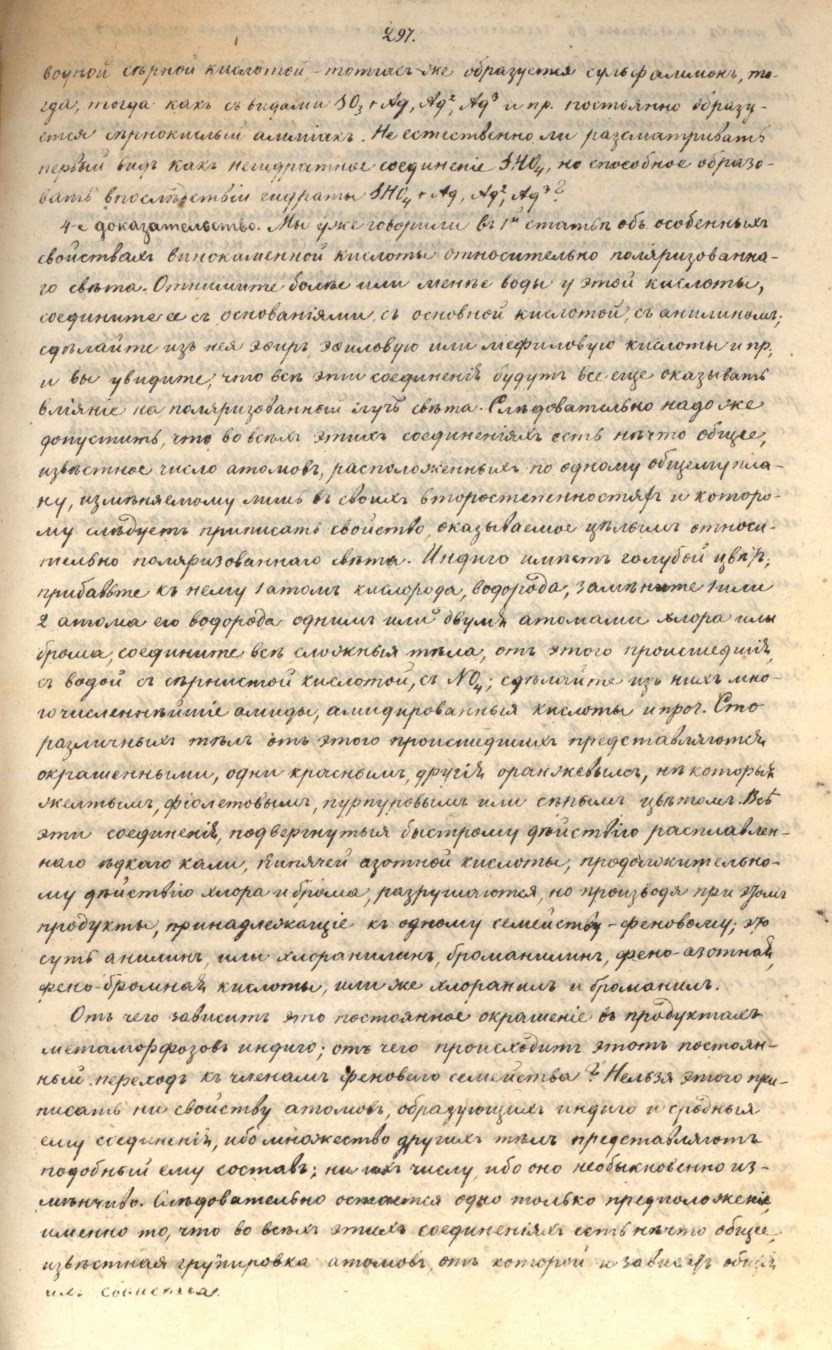 297.
водной сѣрной кислотой – тотчасъ же образуется сульфалимонъ, то-
гда, тогда какъ съ видами SO₃ + Ag, Ag², Ag³ и пр. постоянно образу-
ется сѣрнокислый амміакъ. Не естественно ли разсматривать
первый видъ какъ негидратное соединеніе SHO₄, но способное образо-
вать впослѣдствіи гидраты SHO₄ + Ag, Ag², Ag³?
4-е доказательство. Мы уже говорили въ 1й статьѣ объ особенныхъ
свойствахъ винокаменной кислоты относительно поляризованна-
го свѣта. Отнимите болѣе или менѣе воды у этой кислоты,
соедините ее съ основаніями, съ основной кислотой, съ анилиномъ;
сдѣлайте изъ нея эѳиръ, эѳиловую или меѳиловую кислоты и пр,
и вы увидите, что всѣ эти соединенія будутъ все еще оказывать
вліяніе на поляризованный лучъ свѣта. Слѣдовательно надо же
допустить, что во всѣхъ этихъ соединеніяхъ есть нѣчто общее,
извѣстное число атомовъ, расположенныхъ по одному общему пла-
ну, измѣняемому лишь въ своихъ второстепенностяхъ и которо-
му слѣдуетъ приписать свойство, оказываемое цѣлымъ относи-
тельно поляризованнаго свѣта. Индиго имѣетъ голубой цвѣтъ;
прибавьте къ нему 1 атомъ кислорода, водорода, замѣните 1 или
2 атома его водорода однимъ или двумя атомами хлора или
брома, соедините всѣ сложныя тѣла, отъ этого происшедшія,
съ водой съ сѣрнистой кислотой, съ NO₄; сдѣлайте изъ нихъ мно-
гочисленнѣйшіе амиды, амидированныя кислоты и проч. Сто
различныхъ тѣлъ отъ этого происшедшихъ представляются
окрашенными, одни краснымъ, другія оранжевымъ, нѣкоторыя
желтымъ, фіолетовымъ, пурпуровымъ или синимъ цвѣтомъ. Всѣ
эти соединенія, подвергнутыя быстрому дѣйствію расплавлен-
наго ѣдкаго кали, кипячей азотной кислоты, продолжительно-
му дѣйствію хлора и брома, разрушаются, но производя при этомъ
продукты, принадлежащіе къ одному семейству – феновому; это
суть анилинъ, или хлоранилинъ, броманилинъ, фено-азотная,
фено-бромная кислоты, или же хлоранилъ и броманилъ.
Отъ чего зависитъ это постоянное окрашеніе въ продуктахъ
метаморфозовъ индиго; отъ чего происходитъ этотъ постоян-
ный переходъ къ членамъ феноваго семейства? Нельзя этого при-
писать ни свойству атомовъ, образующихъ индиго и сродныя
ему соединенія, ибо множество другихъ тѣлъ представляютъ
подобный ему составъ; ни ихъ числу, ибо оно необыкновенно из-
мѣнчиво. Слѣдовательно остается одно только предположеніе
именно то, что во всѣхъ этихъ соединеніяхъ есть нѣчто общее,
извѣстная групировка атомовъ, отъ которой и зависятъ общія
имъ свойства.